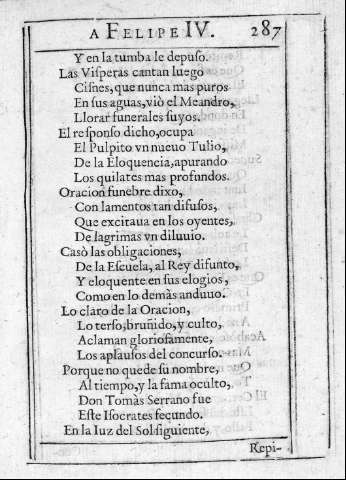 A FELIPE IV. 287
Y en la tumba le depuso.
Las Visperas cantan luego
Cisnes, que nunca mas puros
En sus aguas, viò el Meandro,
Llorar funerales suyos.
El responso dicho, ocupa
El Pulpito vn nueuo Tulio,
De la Eloquencia, apurando
Los quilates mas profundos.
Oracion funebre dixo,
Con lamentos tan difusos,
Que excitaua en los oyentes,
De lagrimas vn diluuio.
Casò las obligaciones,
De la Escuela, al Rey difunto,
Y eloquente en sus elogios,
Como en lo demàs anduuo.
Lo claro de la Oracion,
Lo terso, bruñido, y culto,
Aclaman gloriosamente,
Los aplausos del concurso.
Porque no quede su nombre,
Al tiempo, y la fama oculto,
Don Tomàs Serrano fue
Este Isocrates fecundo.
En la luz del Sol siguiente,
Repi-